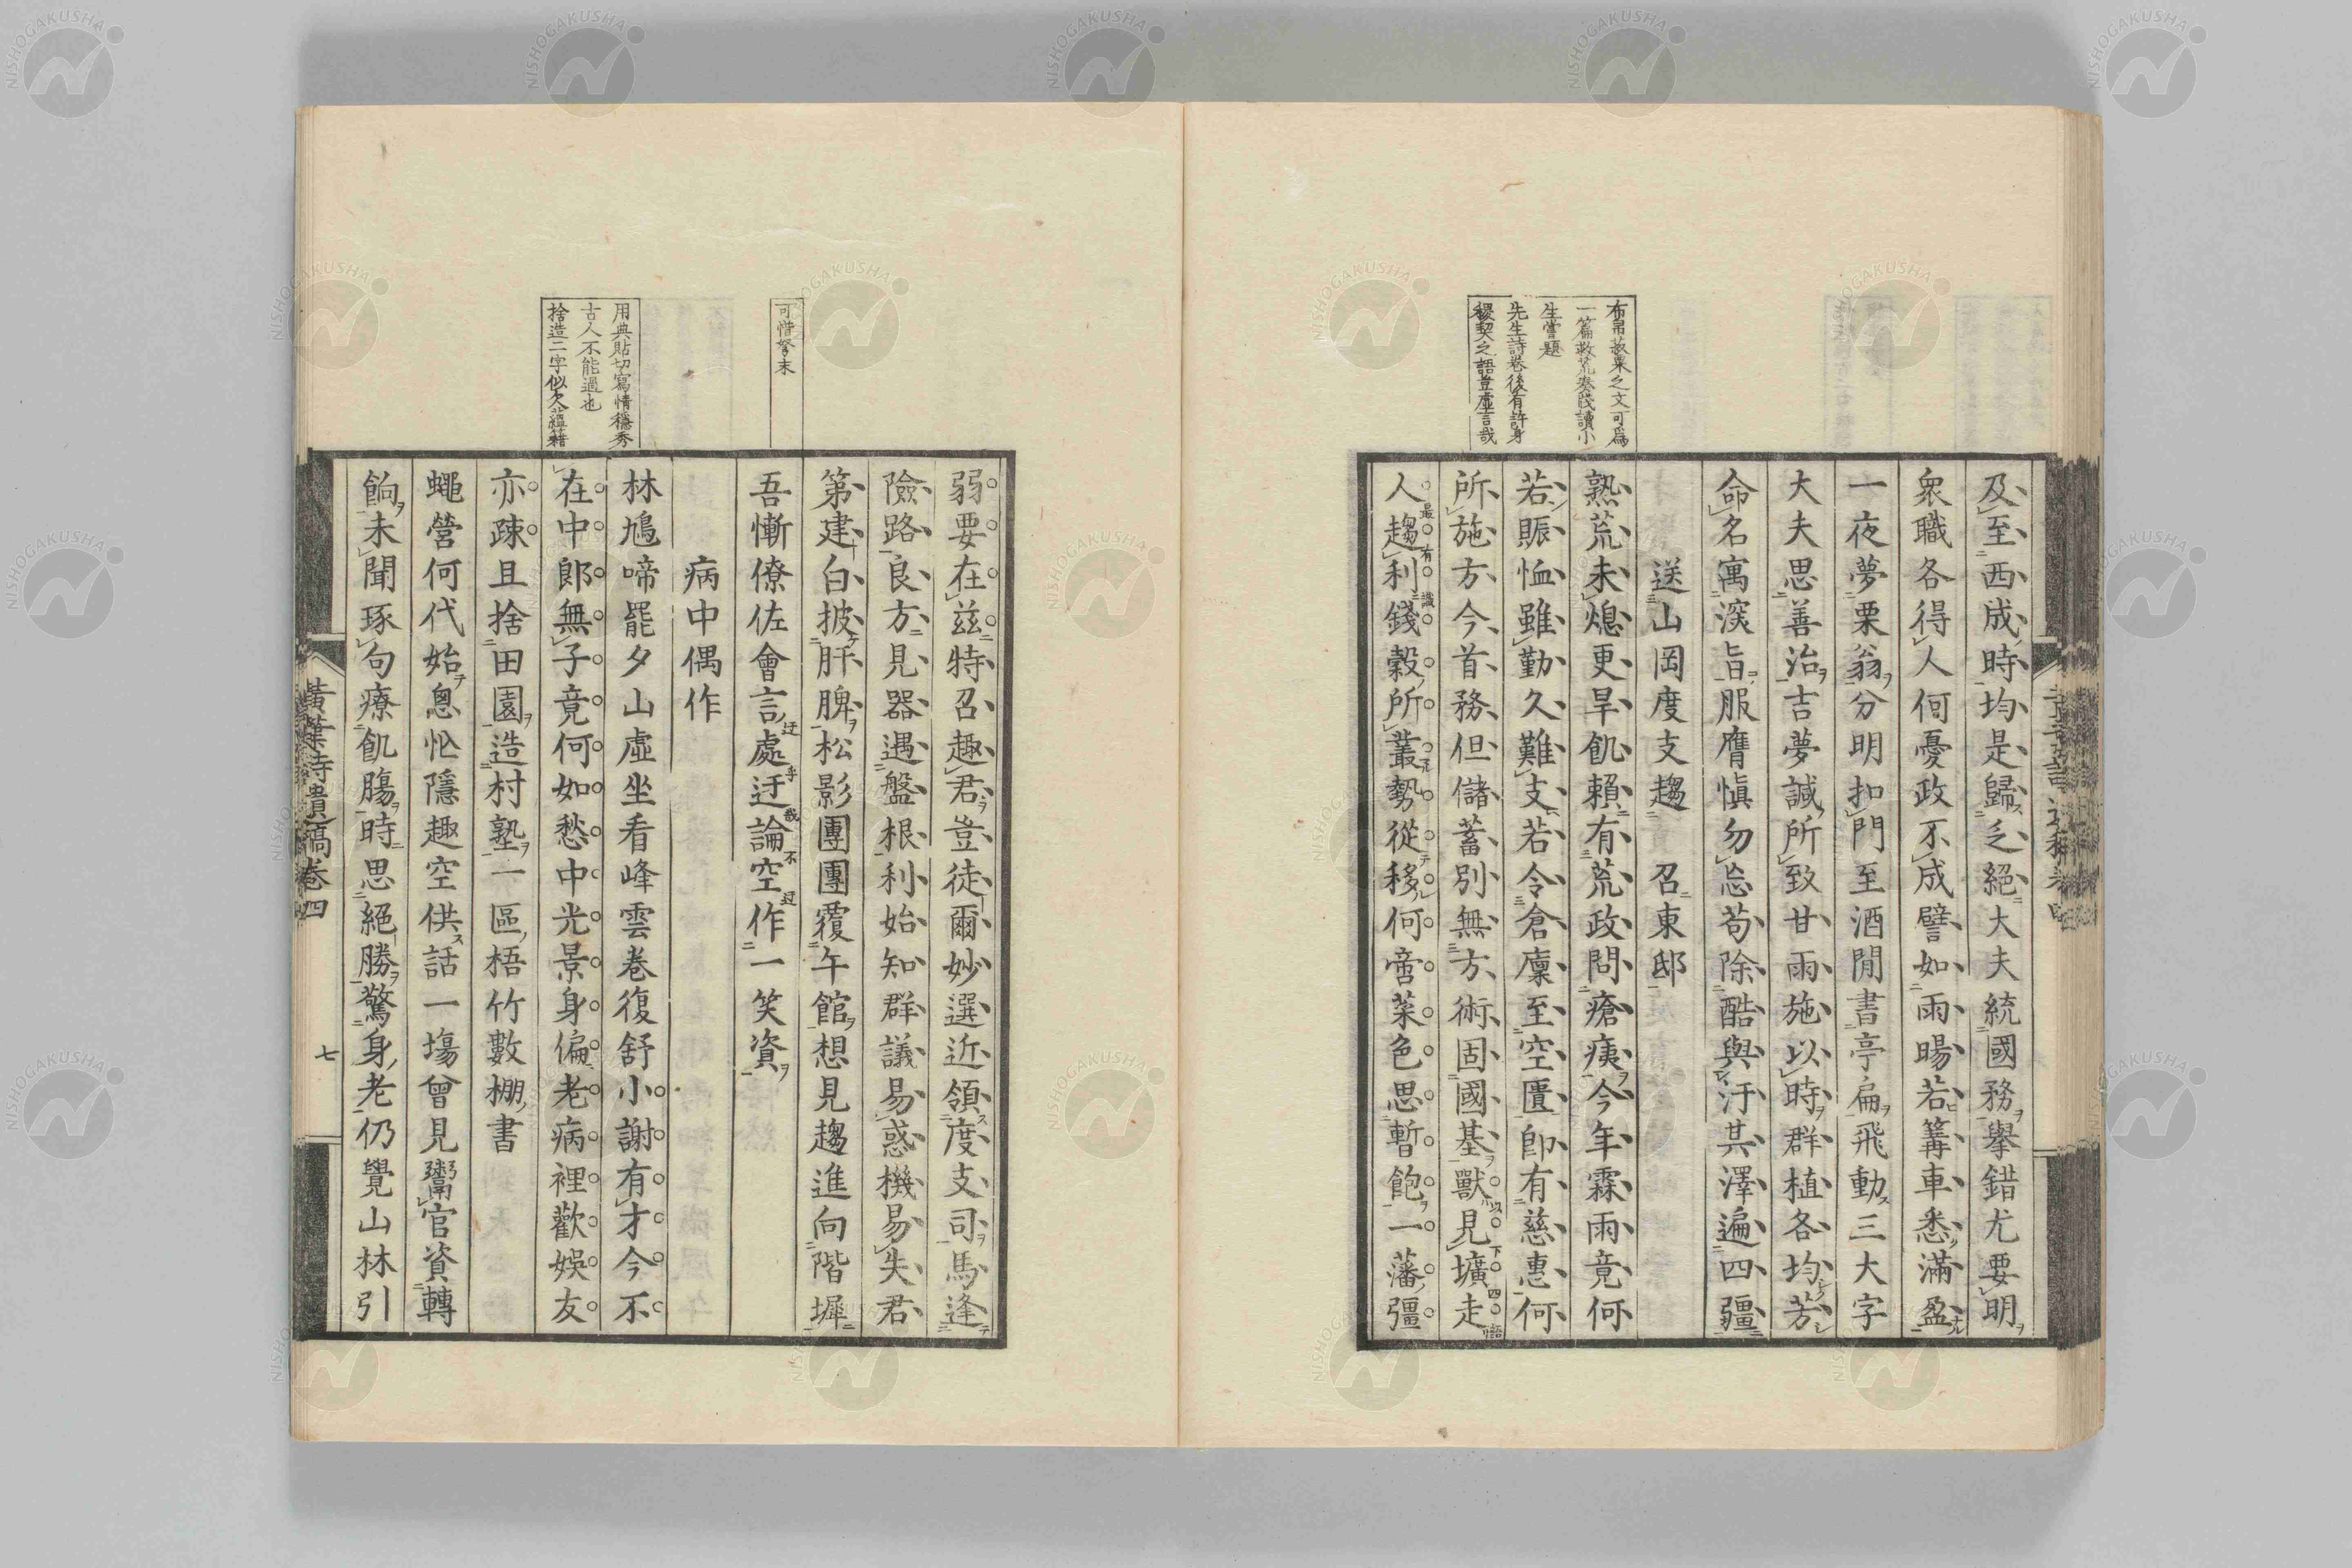 及至西成時均是歸乏絕大夫統國務舉錯尤要明
衆職各得人何憂政不成譬如雨暘若篝車悉滿盈
一夜夢栗翁分明扣門至酒閒書亭扁飛動三大字
大夫思善治吉夢諴所致甘雨施以時群植各均芳
命名寓深旨服膺愼勿忘苟除酷與汙其澤遍四疆
送山岡度支趨召東邸
熟荒未熄更旱飢賴有荒政問瘡痍今年霖雨竟何
若賑恤雖勤久難支若令倉廩至空匱卽有慈惠何
所施方今首務但儲蓄別無方術固國基獸見壙走
人趨利錢穀所叢勢從移何啻菜色思暫飽一藩彊
布帛菽粟之文可爲
一篇救荒奏牋讀小
生嘗題
先生詩卷後有許身
稷契之語豈虛言哉
最有識
弱要在茲特召趣君豈徒爾妙選近領度支司馬逢
險路良方見器遇盤根利始知群議易惑機易失君
第建白披肝脾松影團團覆午館想見趨進向階墀
吾慚僚佐會言處迂論空作一笑資
迂乎哉不迂
病中偶作
林鳩啼罷夕山虛坐看峰雲卷復舒小謝有才今不
在中郎無子竟何如愁中光景身偏老病裡歡娛友
亦疎且捨田園造村塾一區梧竹數棚書
蠅營何代始悤忙隱趣空供話一場曾見鬻官資轉
餉未聞琢句療飢腸時思絕勝驚身老仍覺山林引
可惜弩末
用典貼切寫情穩秀
古人不能過也
捨造二字似欠蘊藉
黃葉詩遺稿卷四
七
NISHOGAKUSHA